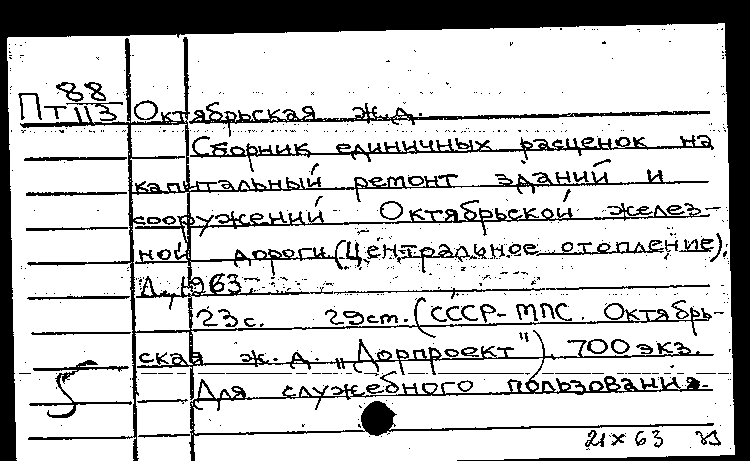 Пт 88/113 Октябрьская ж.д.
Сборник единичных расценок на
капитальный ремонт зданий и
сооружений Октябрьской желез-
ной дороги (Центральное отопление).
Л., 1963.
23с. 29см. (СССР-МПС. Октябрь-
ская ж.д. „Дорпроект"). 700 экз.
Для служебного пользования.
21 x 63